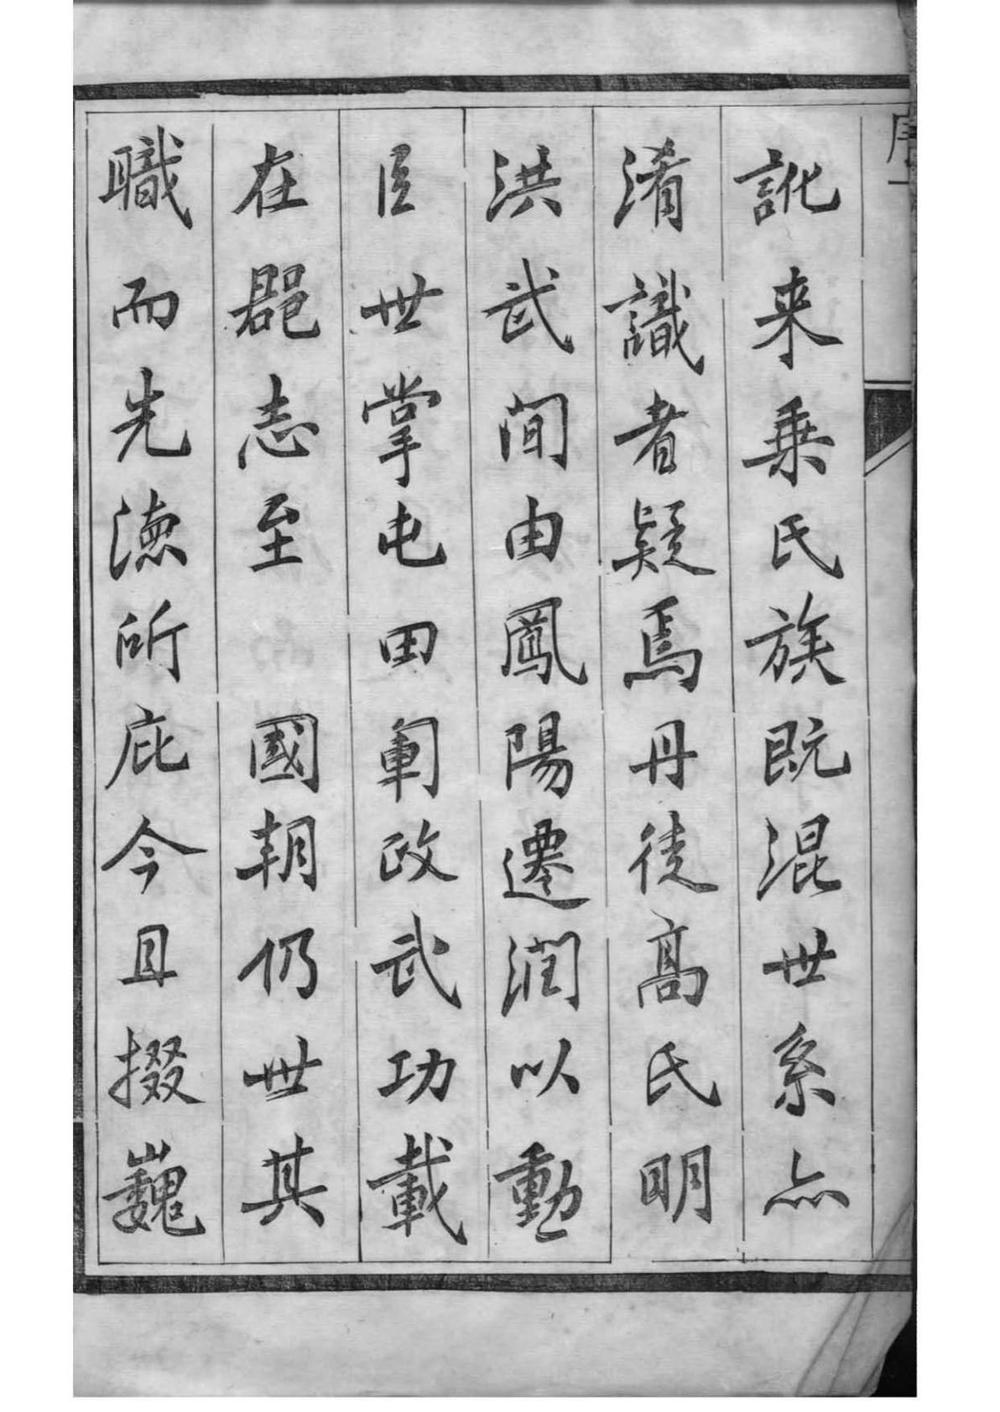 訛来乗氏族既混世系亦
淆識者疑焉丹徒髙氏明
洪武间由鳳陽遷润以勳
臣世掌屯田軍政武功載
在郡志至 國朝仍世其
職而先徳所庇今且掇巍